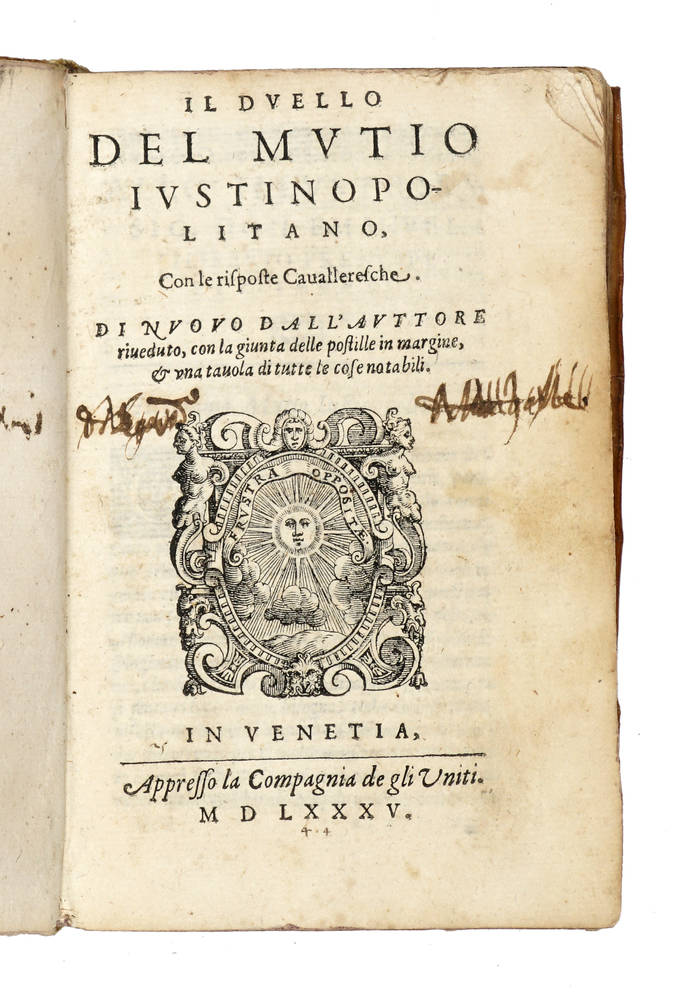 IL DVELLO
DEL MVTIO
IVSTINOPO-
LITANO,
Con le riſpoſte Cauallereſche.
DI NVOVO DALL'AVTTORE
riueduto, con la giunta delle poſtille in margine,
& vna tauola di tutte le coſe notabili.
FRVSTRA OPPOSITÆ
IN VENETIA,
Appreſſo la Compagnia de gli Uniti.
M D LXXXV.